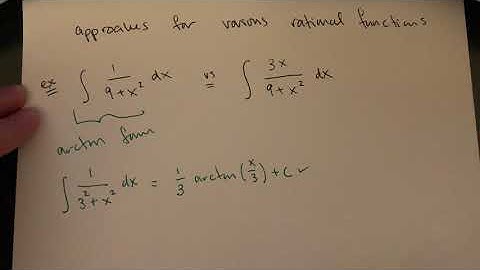 approaches for various rational functions
ex ∫ 1/(9+x²) dx vs ∫ 3x/(9+x²) dx
arctan form
∫ 1/(3²+x²) dx = 1/3 arctan(x/3) + C ✓